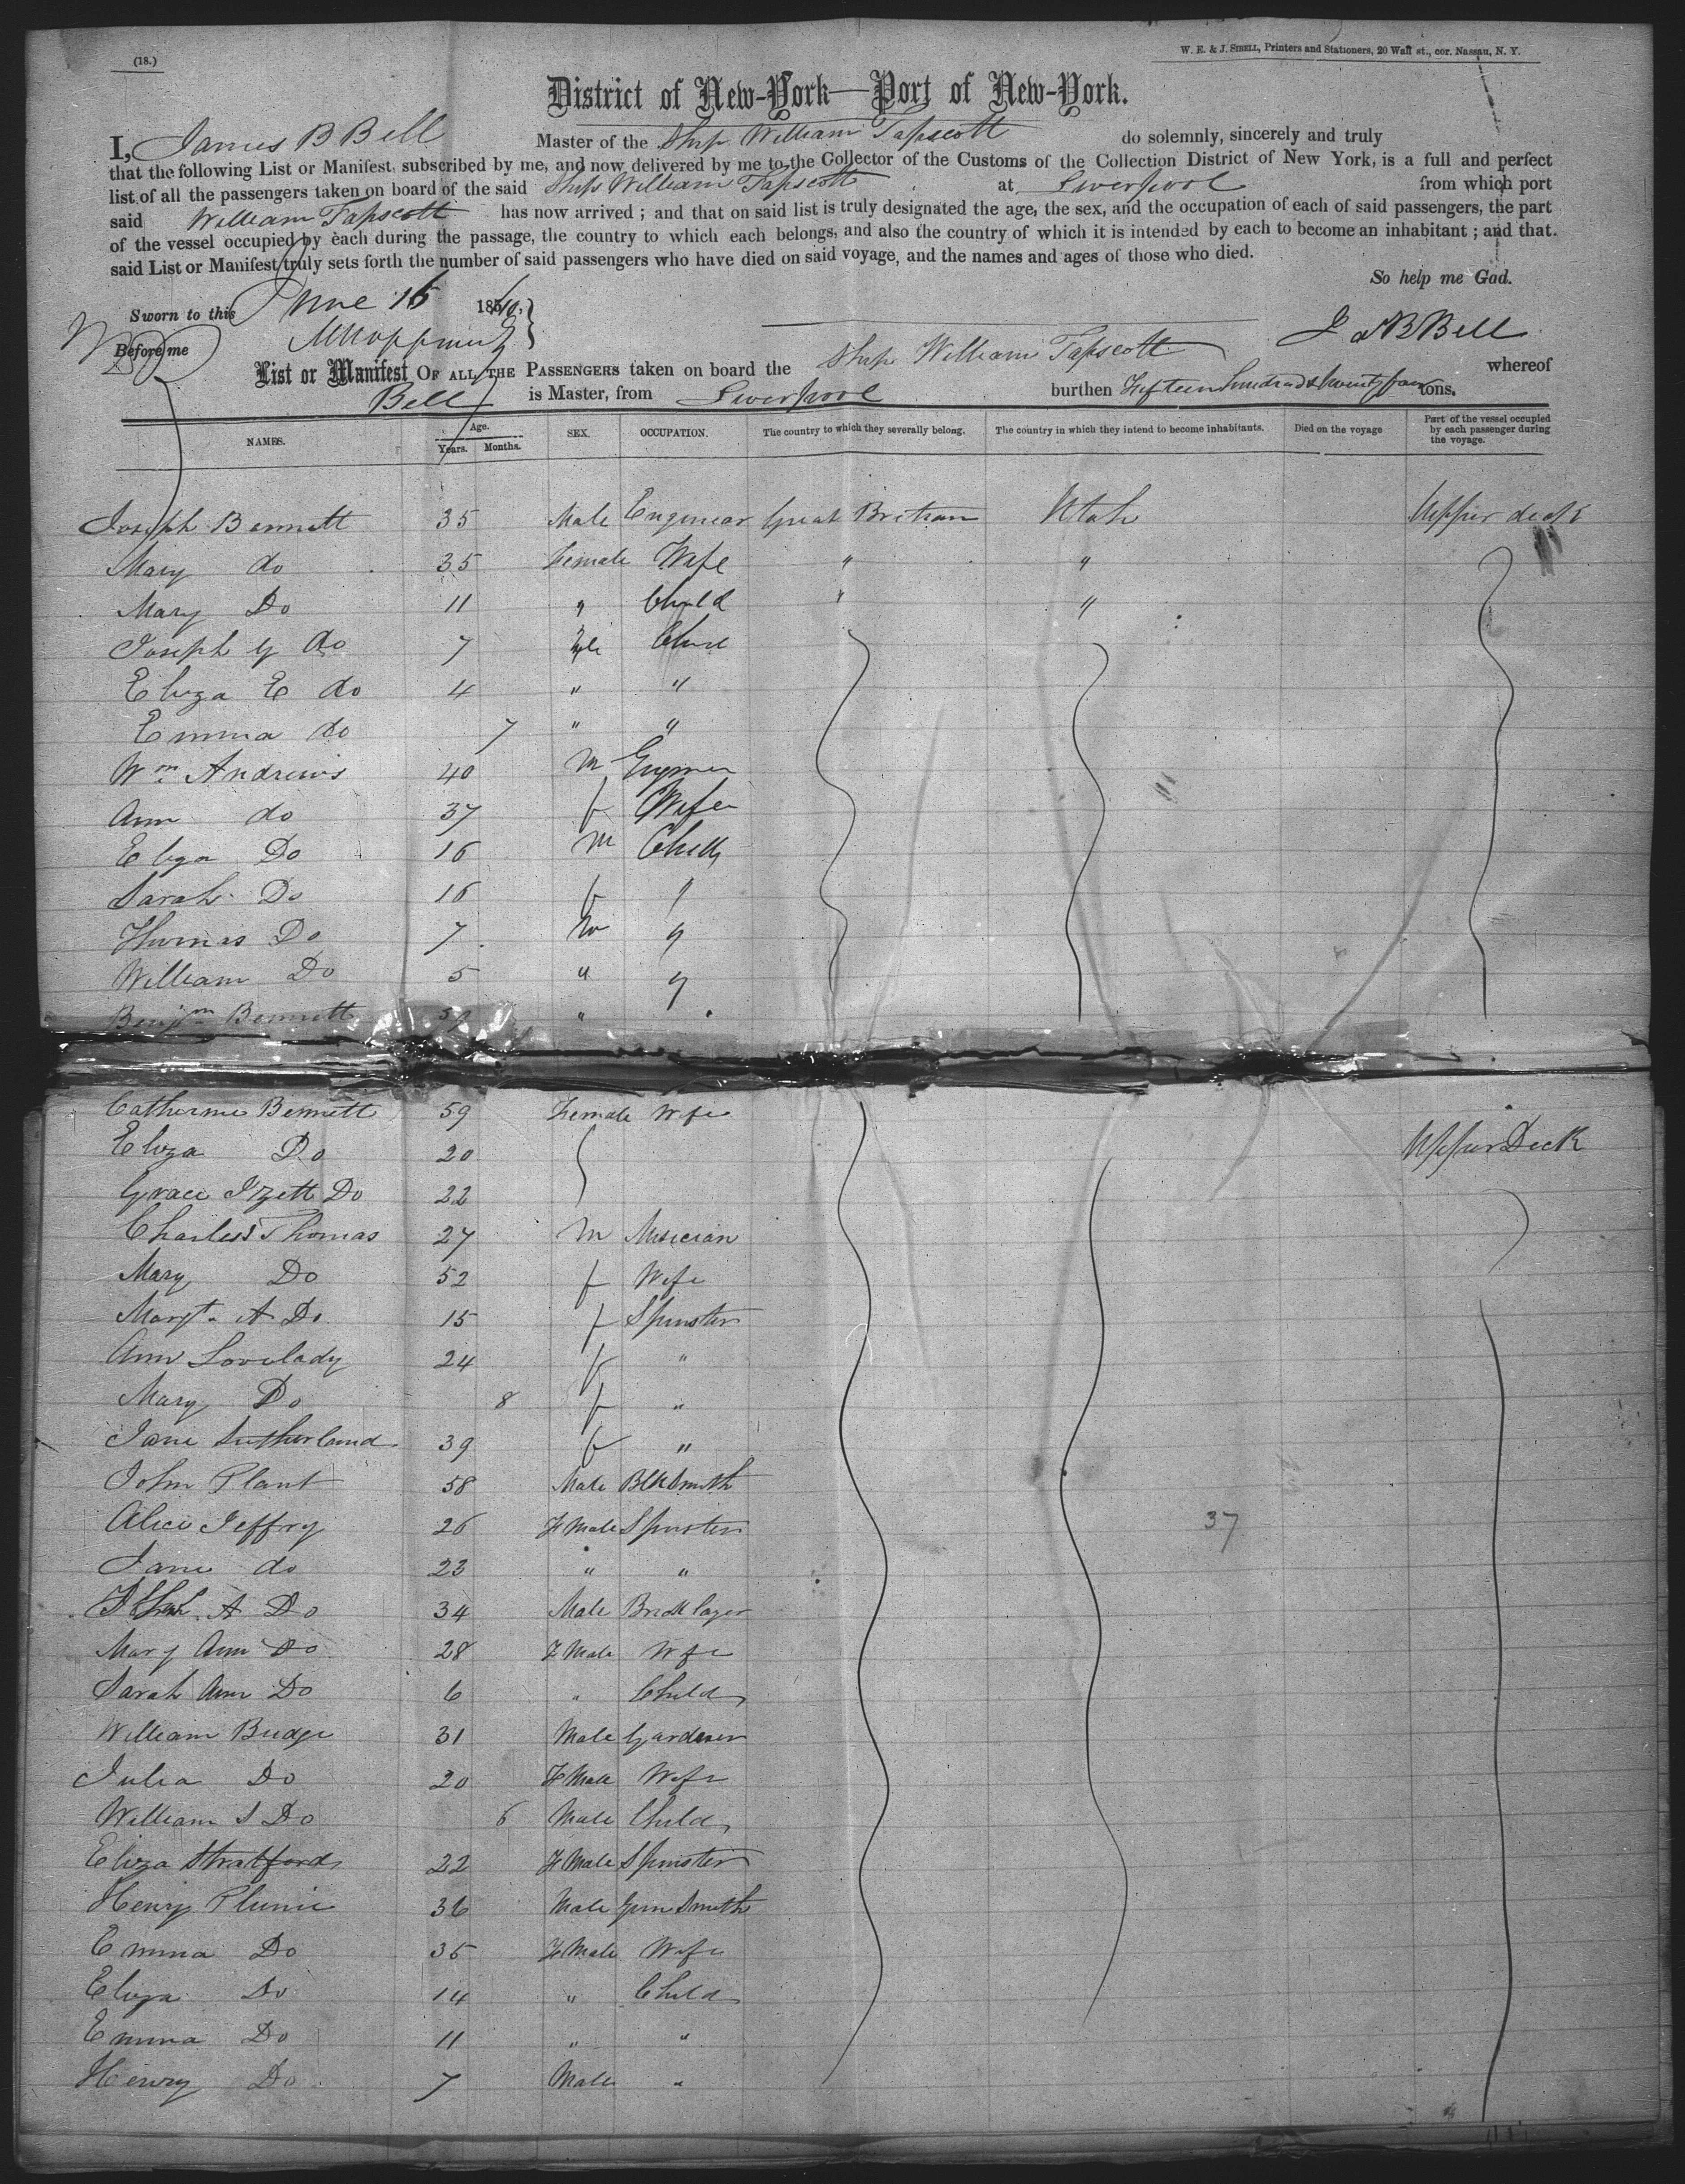 (18.)
W. E. & J. SIBELL, Printers and Stationers, 20 Wall st., cor. Nassau, N. Y.
District of New-York—Port of New-York.
I, James B Bell Master of the Ship William Tapscott do solemnly, sincerely and truly
that the following List or Manifest, subscribed by me, and now delivered by me to the Collector of the Customs of the Collection District of New York, is a full and perfect
list of all the passengers taken on board of the said Ship William Tapscott at Liverpool from which port
said William Tapscott has now arrived ; and that on said list is truly designated the age, the sex, and the occupation of each of said passengers, the part
of the vessel occupied by each during the passage, the country to which each belongs, and also the country of which it is intended by each to become an inhabitant ; and that
said List or Manifest truly sets forth the number of said passengers who have died on said voyage, and the names and ages of those who died.
So help me God.
Sworn to this June 15 18
Before me
J a B Bell
List or Manifest OF ALL THE PASSENGERS taken on board the Ship William Tapscott whereof
Bell is Master, from Liverpool burthen Fifteen hundred & twenty four tons.
NAMES. Age. Years. Months. SEX. OCCUPATION. The country to which they severally belong. The country in which they intend to become inhabitants. Died on the voyage Part of the vessel occupied by each passenger during the voyage.
Joseph Bennett 35 Male Enginear Great Britian Utah Upper deck
Mary do 35 Female Wife " "
Mary Do 11 " Child " "
Joseph G do 7 Child
Eliza E do 4 " "
Emma do 7 " "
Wm Andrews 40 M
Ann do 37 f Wife
Do 16 M
Sarah Do 16 f "
Thomas Do 7 M "
William Do 5 " "
Benjmn Bennett "
Catherine Bennett 59 Female Wife
Eliza Do 20 Upper Deck
Grace Izett Do 22
Charles Thomas 27 M Musician
Mary Do 52 f Wife
Margt A Do 15 f Spinster
Ann Lovelady 24 f "
Mary Do 8 f "
Jane Sutherland 39 f "
John Plant 58 Male BlkSmith
Alice Jeffry 26 FMale Spinster
Jane do 23 " "
A Do 34 Male Bricklayer
37
Mary Ann Do 28 FMale Wife
Sarah Ann Do 6 " Child
William Budge 31 Male Gardener
Julia Do 20 FMale Wife
William S Do 6 Male Child
Eliza Stratford 22 FMale Spinster
Henry 36 Male Gun Smith
Emma Do 35 FMale Wife
Eliza Do 14 " Child
Emma Do 11 " "
Henry Do 7 Male "